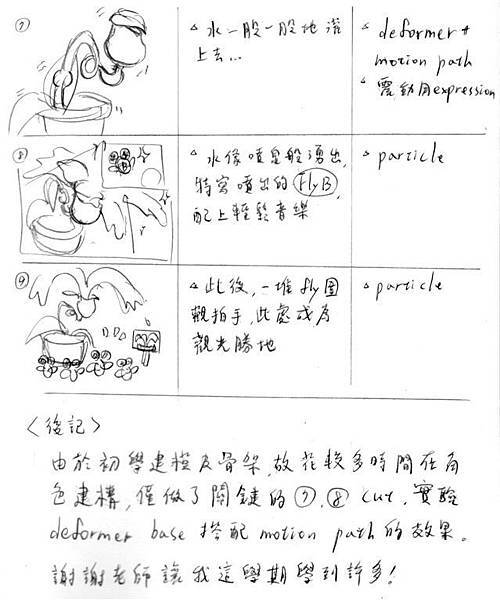 ⑦
△ 水一股一股地湧
上去...
△ deformer +
motion path
△ 震動用expression
⑧
△ 水像噴泉般湧出,
特寫噴出的 Fly B,
配上輕鬆音樂
△ particle
⑨
△ 此後,一堆 fly 圍
觀拍手,此處成為
觀光勝地
△ particle
〈後記〉
由於初學建模及骨架,故花較多時間在角
色建構,僅做了關鍵的⑦,⑧ cut,實驗
deformer base 搭配 motion path 的效果。
謝謝老師讓我這學期學到許多!